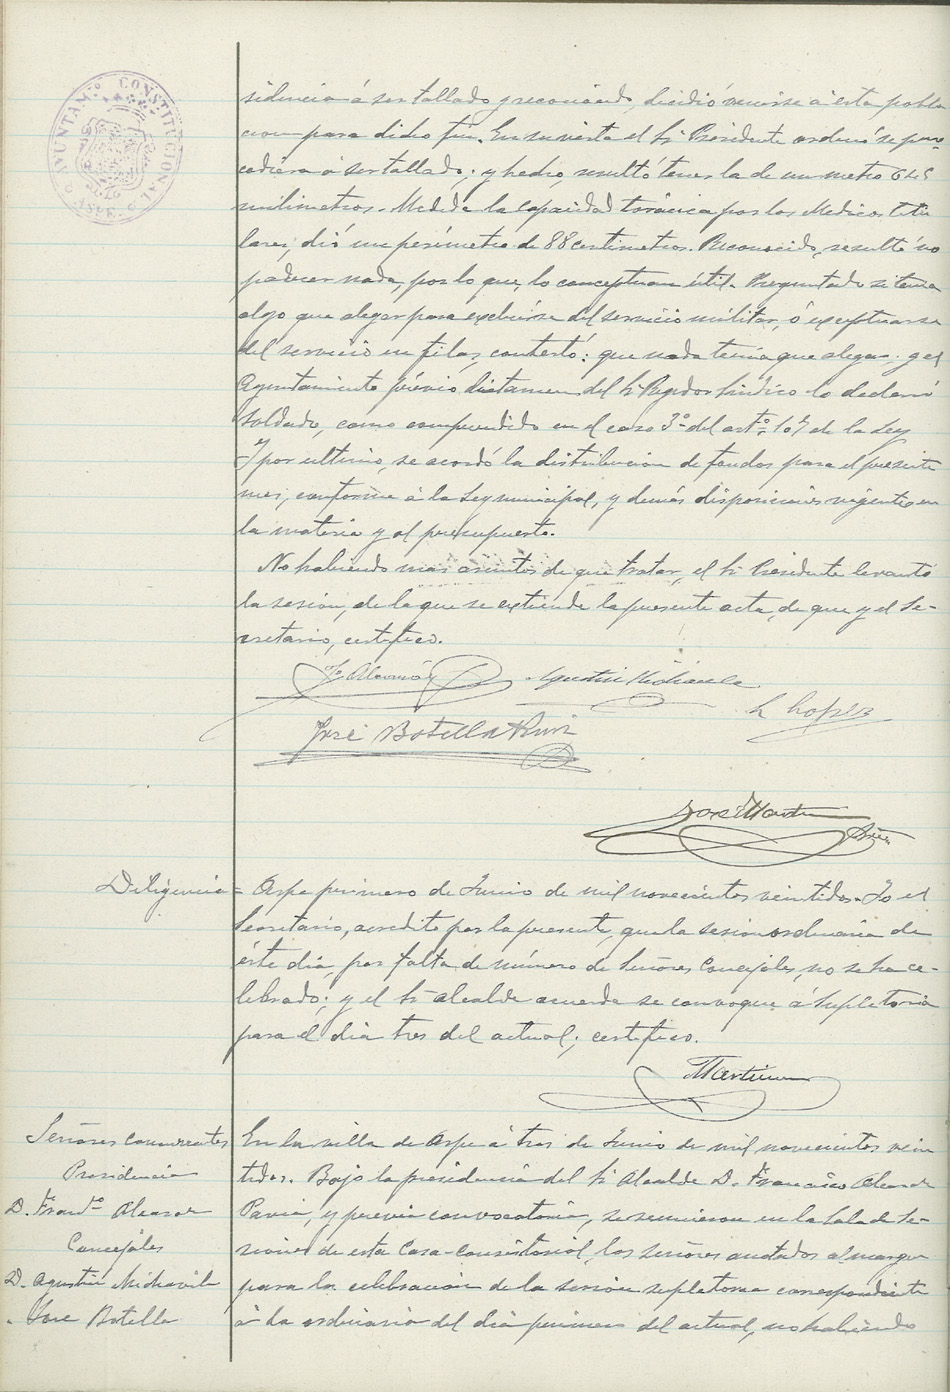 AYUNTAM.º CONSTITUCIONAL
ASPE
sidencia á ser tallado y reconocido, decidió venirse á esta pobla
cion para dicho fin. En su vista el Sr Presidente ordenó se pro-
cediera á ser tallado; y hecho, resultó tener la de un metro 645
milimetros. Medida la capacidad torácica por los Medicos titu
lares, dió un perímetro de 88 centimetros. Reconocido, resultó no
padecer nada, por lo que, lo conceptuan útil. Preguntado si tenia
algo que alegar para excluirse del servicio militar, ó exceptuarse
del servicio en filas, contestó: que nada tenia que alegar; y el
Ayuntamiento prévio dictamen del Sr Regidor Sindico lo declaró
soldado, como comprendido en el caso 3º del artº 107 de la Ley
Y por ultimo, se acordó la distribucion de fondos para el presente
mes, conforme á la Ley municipal, y demás disposiciones vigentes en
la materia y al presupuesto.
No habiendo mas asuntos de que tratar, el Sr Presidente levantó
la sesion, de la que se extiende la presente acta, de que yo el Se-
cretario, certifico.
Agustin Michavila
José Botella
José Martin
Diligencia = Aspe primero de Junio de mil novecientos veintidos. Yo el
Secretario, acredito por la presente, que la sesion ordinaria de
éste dia, por falta de número de Señores Concejales, no se ha ce-
lebrado; y el Sr Alcalde acuerda se convoque á supletoria
para el dia tres del actual; certifico.
Señores Concurrentes
Presidencia
D. Francº Alcaraz
Concejales
D. Agustin Michavila
" Jose Botella
En la villa de Aspe á tres de Junio de mil novecientos vein
tidos. Bajo la presidencia del Sr Alcalde D. Francisco Alcaraz
Pavia, y previa convocatoria, se reunieron en la Sala de Se-
siones de esta Casa-consistorial, los señores anotados al margen
para la celebracion de la sesion supletoria correspondiente
á la ordinaria del dia primero del actual, no habiendo